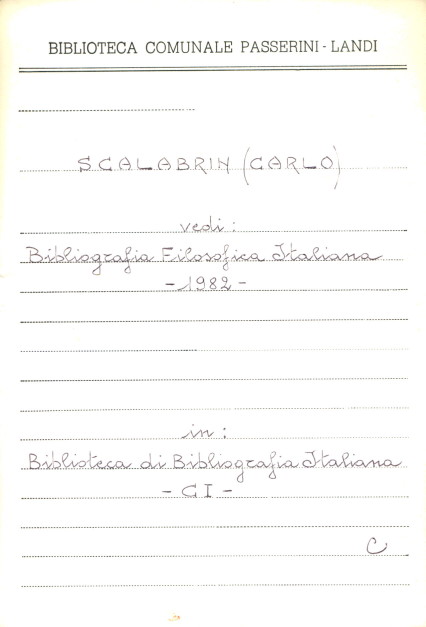 BIBLIOTECA COMUNALE PASSERINI - LANDI
SCALABRIN (CARLO)
vedi :
Bibliografia Filosofica Italiana
- 1982 -
in :
Biblioteca di Bibliografia Italiana
- CI -
C